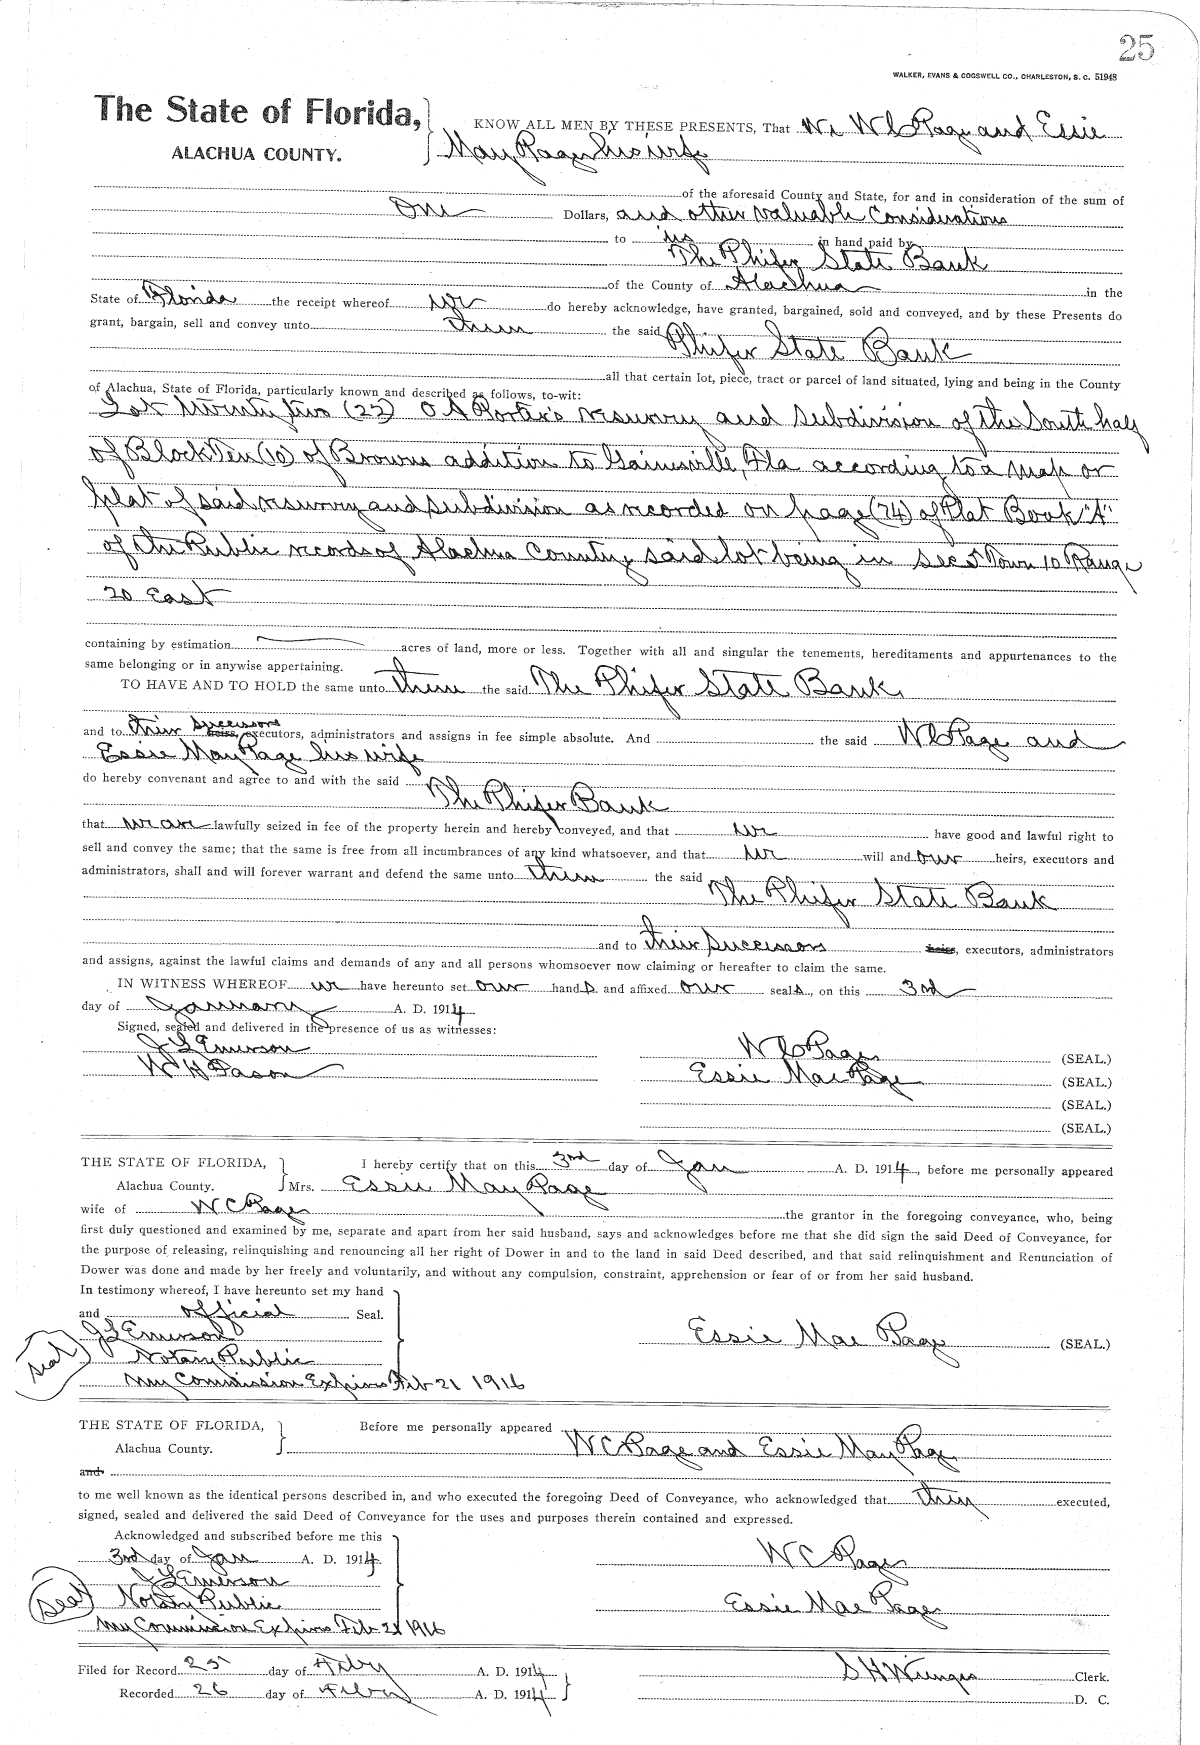 25
WALKER, EVANS & COGSWELL CO., CHARLESTON, S. C. 51948
The State of Florida,
ALACHUA COUNTY.
KNOW ALL MEN BY THESE PRESENTS, That We W C Page and Essie
May Page his wife
of the aforesaid County and State, for and in consideration of the sum of
One Dollars, and other valuable Considerations
to us in hand paid by
The Phifer State Bank
of the County of Alachua in the
State of Florida the receipt whereof we do hereby acknowledge, have granted, bargained, sold and conveyed, and by these Presents do
grant, bargain, sell and convey unto them the said
Phifer State Bank
all that certain lot, piece, tract or parcel of land situated, lying and being in the County
of Alachua, State of Florida, particularly known and described as follows, to-wit:
Lot twenty two (22) O A Porter's resurvey and subdivision of the South half
of Block Ten (10) of Browns addition to Gainesville, Fla according to a map or
plat of said resurvey and subdivision as recorded on page (74) of Plat Book "A"
of the Public records of Alachua County, said lot being in Sec 5 Town 10 Range
20 East
containing by estimation acres of land, more or less. Together with all and singular the tenements, hereditaments and appurtenances to the
same belonging or in anywise appertaining.
TO HAVE AND TO HOLD the same unto them the said The Phifer State Bank,
and to their successors heirs, executors, administrators and assigns in fee simple absolute. And the said W C Page and
Essie May Page his wife
do hereby convenant and agree to and with the said
The Phifer Bank
that we are lawfully seized in fee of the property herein and hereby conveyed, and that we have good and lawful right to
sell and convey the same; that the same is free from all incumbrances of any kind whatsoever, and that we will and our heirs, executors and
administrators, shall and will forever warrant and defend the same unto them the said
The Phifer State Bank
and to their successors heirs, executors, administrators
and assigns, against the lawful claims and demands of any and all persons whomsoever now claiming or hereafter to claim the same.
IN WITNESS WHEREOF we have hereunto set our hands and affixed our seals, on this 3rd
day of January A. D. 1914
Signed, sealed and delivered in the presence of us as witnesses:
J L Emerson
W H
W C Page (SEAL.)
Essie Mae Page (SEAL.)
(SEAL.)
(SEAL.)
THE STATE OF FLORIDA,
Alachua County.
I hereby certify that on this 3rd day of Jan A. D. 1914, before me personally appeared
Mrs. Essie May Page
wife of W C Page the grantor in the foregoing conveyance, who, being
first duly questioned and examined by me, separate and apart from her said husband, says and acknowledges before me that she did sign the said Deed of Conveyance, for
the purpose of releasing, relinquishing and renouncing all her right of Dower in and to the land in said Deed described, and that said relinquishment and Renunciation of
Dower was done and made by her freely and voluntarily, and without any compulsion, constraint, apprehension or fear of or from her said husband.
In testimony whereof, I have hereunto set my hand
and official Seal.
J L Emerson
Seal
Notary Public
My Commission Expires Feb 21 1916
Essie Mae Page (SEAL.)
THE STATE OF FLORIDA,
Alachua County.
Before me personally appeared
W C Page and Essie May Page
and
to me well known as the identical persons described in, and who executed the foregoing Deed of Conveyance, who acknowledged that they executed,
signed, sealed and delivered the said Deed of Conveyance for the uses and purposes therein contained and expressed.
Acknowledged and subscribed before me this
3rd day of Jan A. D. 1914
J L Emerson
Seal
Notary Public
My Commission Expires Feb 21 1916
W C Page
Essie Mae Page
Filed for Record 25 day of Feby A. D. 1914
Recorded 26 day of Feby A. D. 1914
S H Wienges Clerk.
D. C.